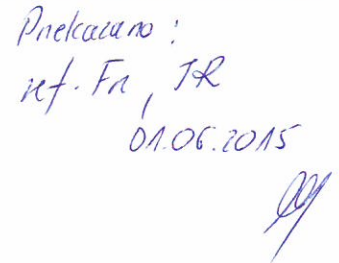 Przekazano:
ref. Fn, JR
01.06.2015